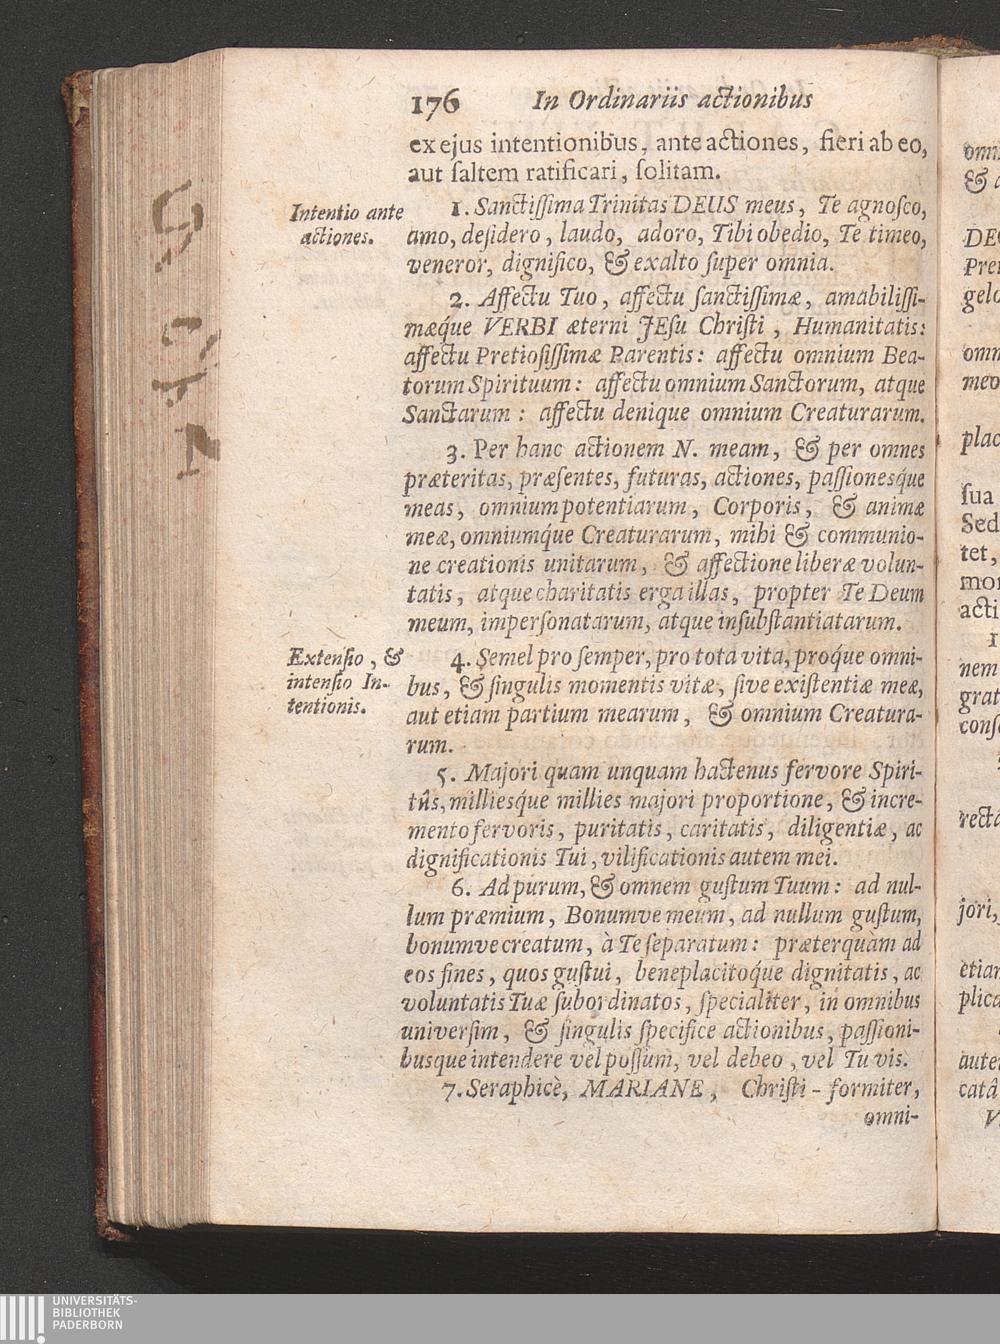 176 In Ordinariis actionibus
ex ejus intentionibus, ante actiones, fieri ab eo,
aut ſaltem ratificari, ſolitam.
Intentio ante
actiones.
1. Sanctiſſima Trinitas DEUS meus, Te agnoſco,
amo, deſidero, laudo, adoro, Tibi obedio, Te timeo,
veneror, dignifico, & exalto ſuper omnia.
2. Affectu Tuo, affectu ſanctiſſimæ, amabiliſſi-
mæq́ue VERBI æterni JEſu Chriſti, Humanitatis:
affectu Pretioſiſſimæ Parentis: affectu omnium Bea-
torum Spirituum: affectu omnium Sanctorum, atque
Sanctarum: affectu denique omnium Creaturarum.
3. Per hanc actionem N. meam, & per omnes
præteritas, præſentes, futuras, actiones, paſſionesq́ue
meas, omnium potentiarum, Corporis, & animæ
meæ, omniumq́ue Creaturarum, mihi & communio-
ne creationis unitarum, & affectione liberæ volun-
tatis, atque charitatis erga illas, propter Te Deum
meum, imperſonatarum, atque inſubſtantiatarum.
Extenſio, &
intenſio In-
tentionis.
4. Semel pro ſemper, pro tota vita, proq́ue omni-
bus, & ſingulis momentis vitæ, ſive exiſtentiæ meæ,
aut etiam partium mearum, & omnium Creatura-
rum.
5. Majori quam unquam hactenus fervore Spiri-
tûs, milliesq́ue millies majori proportione, & incre-
mento fervoris, puritatis, caritatis, diligentiæ, ac
dignificationis Tui, vilificationis autem mei.
6. Ad purum, & omnem guſtum Tuum: ad nul-
lum præmium, Bonumve meum, ad nullum guſtum,
bonumve creatum, à Te ſeparatum: præterquàm ad
eos fines, quos guſtui, beneplacitoq́ue dignitatis, ac
voluntatis Tuæ ſubordinatos, ſpecialiter, in omnibus
univerſim, & ſingulis ſpecifice actionibus, paſſioni-
busque intendere vel poſſum, vel debeo, vel Tu vis.
7. Seraphicè, MARIANE, Chriſti-formiter,
omni-
& a
DEU
gelo
omn
meo
plac
ſua
Sed
tet,
mor
acti
1
nem
grat
conſ
recta
jori,
etiam
plica
aute
catâ
V
UNIVERSITÄTS-
BIBLIOTHEK
PADERBORN